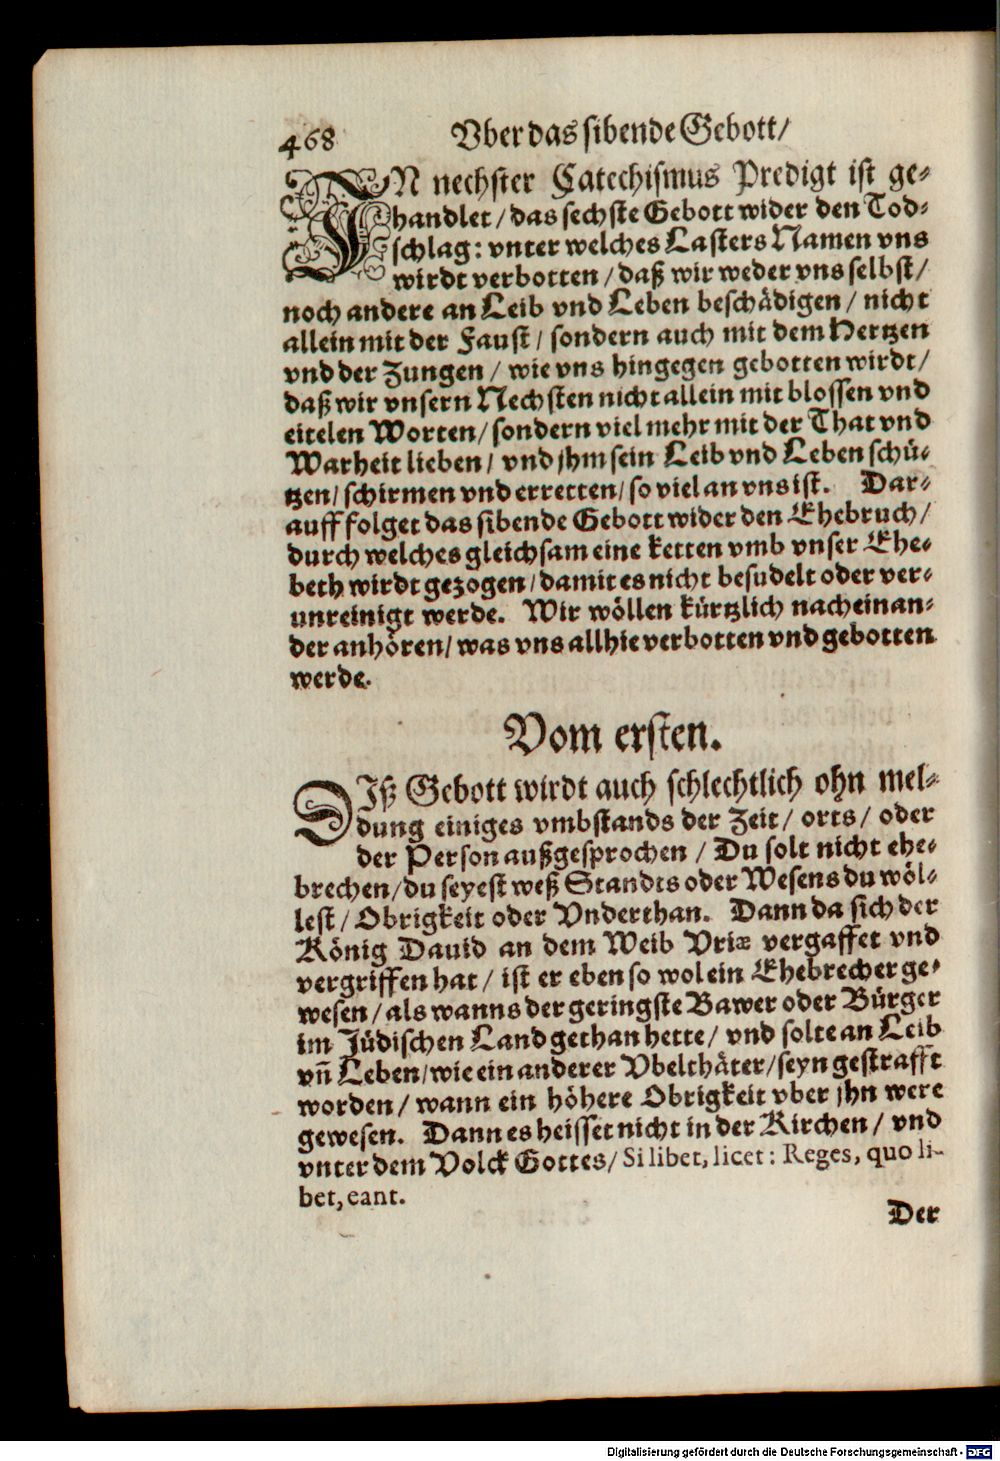 468 Vber das sibende Gebott/
IN nechster Catechismus Predigt ist ge-
handlet/das sechste Gebott wider den Tod-
schlag: vnter welches Lasters Namen vns
wirdt verbotten/daß wir weder vns selbst/
noch andere an Leib vnd Leben beschädigen/nicht
allein mit der Faust/sondern auch mit dem Hertzen
vnd der Zungen/wie vns hingegen gebotten wirdt/
daß wir vnsern Nechsten nicht allein mit blossen vnd
eitelen Worten/sondern viel mehr mit der That vnd
Warheit lieben/vnd jhm sein Leib vnd Leben schü-
tzen/schirmen vnd erretten/so viel an vns ist. Dar-
auff folget das sibende Gebott wider den Ehebruch/
durch welches gleichsam eine ketten vmb vnser Ehe-
beth wirdt gezogen/damit es nicht besudelt oder ver-
unreinigt werde. Wir wöllen kürtzlich nach einan-
der anhören/was vns allhie verbotten vnd gebotten
werde.
Vom ersten.
DIß Gebott wirdt auch schlechtlich ohn mel-
dung einiges vmbstands der Zeit/orts/oder
der Person außgesprochen/Du solt nicht ehe-
brechen/du seyest weß Standts oder Wesens du wöl-
lest/Obrigkeit oder Vnderthan. Dann da sich der
König Dauid an dem Weib Vriæ vergaffet vnd
vergriffen hat/ist er eben so wol ein Ehebrecher ge-
wesen/als wanns der geringste Bawer oder Bürger
im Jüdischen Land gethan hette/vnd solte an Leib
vñ Leben/wie ein anderer Vbelthäter/seyn gestrafft
worden/wann ein höhere Obrigkeit vber jhn were
gewesen. Dann es heisset nicht in der Kirchen/vnd
vnter dem Volck Gottes/Si libet, licet: Reges, quo li-
bet, eant.
Der
Digitalisierung gefördert durch die Deutsche Forschungsgemeinschaft - DFG